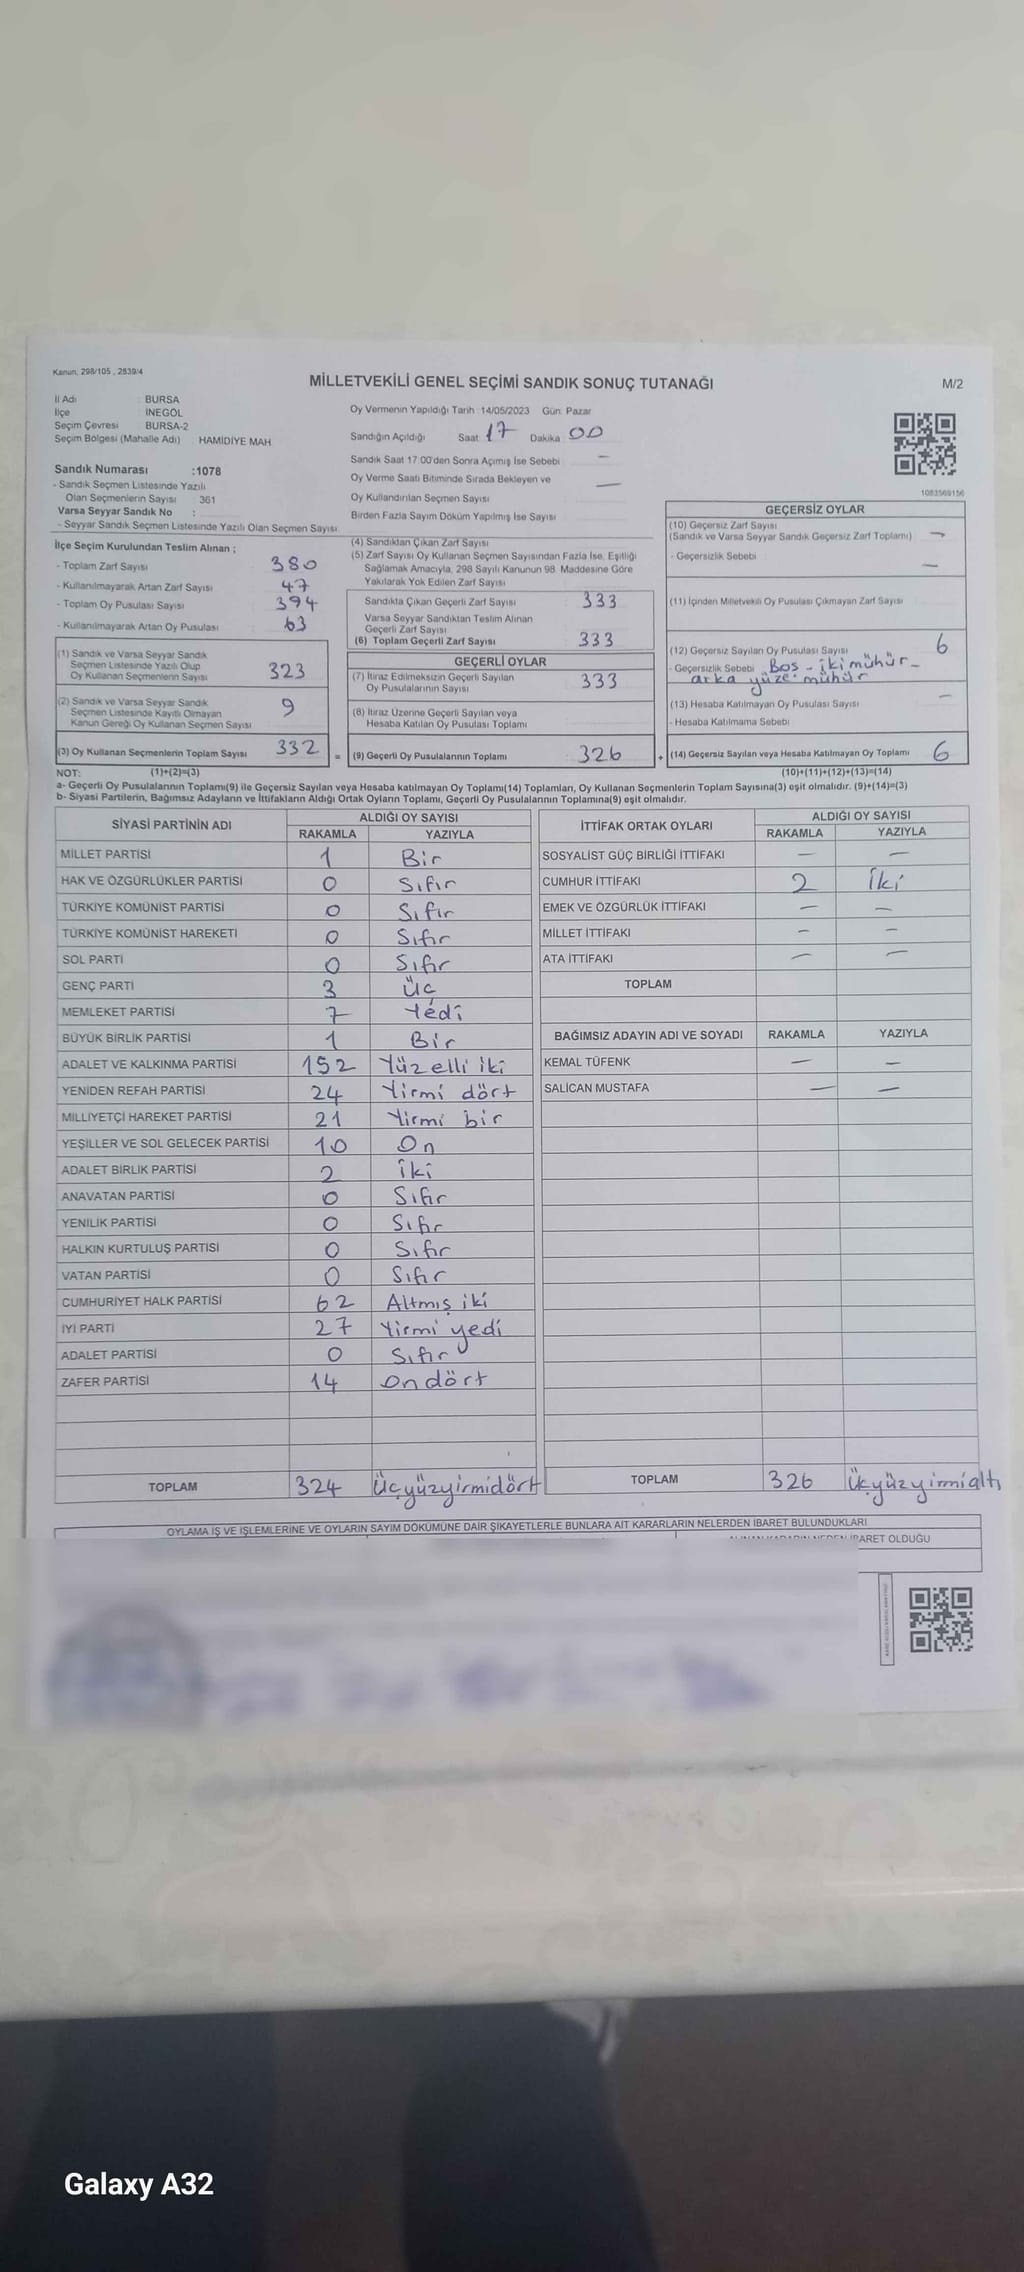 Kanun: 298/105 , 2839/4
MİLLETVEKİLİ GENEL SEÇİMİ SANDIK SONUÇ TUTANAĞI
M/2
İl Adı : BURSA
İlçe : İNEGÖL
Seçim Çevresi : BURSA-2
Seçim Bölgesi (Mahalle Adı) : HAMİDİYE MAH.
Sandık Numarası :1078
- Sandık Seçmen Listesinde Yazılı
Olan Seçmenlerin Sayısı : 361
Varsa Seyyar Sandık No :
- Seyyar Sandık Seçmen Listesinde Yazılı Olan Seçmen Sayısı:
Oy Vermenin Yapıldığı Tarih : 14/05/2023 Gün: Pazar
Sandığın Açıldığı Saat: 17 Dakika: 00
Sandık Saat 17:00'den Sonra Açılmış İse Sebebi : —
Oy Verme Saati Bitiminde Sırada Bekleyen ve
Oy Kullandırılan Seçmen Sayısı : —
Birden Fazla Sayım Döküm Yapılmış İse Sayısı :
1083569156
İlçe Seçim Kurulundan Teslim Alınan ;
- Toplam Zarf Sayısı : 380
- Kullanılmayarak Artan Zarf Sayısı : 47
- Toplam Oy Pusulası Sayısı : 394
- Kullanılmayarak Artan Oy Pusulası : 63
(1) Sandık ve Varsa Seyyar Sandık
Seçmen Listesinde Yazılı Olup
Oy Kullanan Seçmenlerin Sayısı 323
(2) Sandık ve Varsa Seyyar Sandık
Seçmen Listesinde Kayıtlı Olmayan
Kanun Gereği Oy Kullanan Seçmen Sayısı 9
(3) Oy Kullanan Seçmenlerin Toplam Sayısı 332 =
(4) Sandıktan Çıkan Zarf Sayısı
(5) Zarf Sayısı Oy Kullanan Seçmen Sayısından Fazla İse, Eşitliği
Sağlamak Amacıyla, 298 Sayılı Kanunun 98. Maddesine Göre
Yakılarak Yok Edilen Zarf Sayısı
Sandıkta Çıkan Geçerli Zarf Sayısı : 333
Varsa Seyyar Sandıktan Teslim Alınan
Geçerli Zarf Sayısı
(6) Toplam Geçerli Zarf Sayısı : 333
GEÇERLİ OYLAR
(7) İtiraz Edilmeksizin Geçerli Sayılan
Oy Pusulalarının Sayısı : 333
(8) İtiraz Üzerine Geçerli Sayılan veya
Hesaba Katılan Oy Pusulası Toplamı
(9) Geçerli Oy Pusulalarının Toplamı : 326 +
GEÇERSİZ OYLAR
(10) Geçersiz Zarf Sayısı
(Sandık ve Varsa Seyyar Sandık Geçersiz Zarf Toplamı) : —
- Geçersizlik Sebebi : —
(11) İçinden Milletvekili Oy Pusulası Çıkmayan Zarf Sayısı
(12) Geçersiz Sayılan Oy Pusulası Sayısı : 6
- Geçersizlik Sebebi : Boş - iki mühür -
arka yüze mühür
(13) Hesaba Katılmayan Oy Pusulası Sayısı : —
- Hesaba Katılmama Sebebi :
(14) Geçersiz Sayılan veya Hesaba Katılmayan Oy Toplamı : 6
NOT: (1)+(2)=(3)
(10)+(11)+(12)+(13)=(14)
a- Geçerli Oy Pusulalarının Toplamı(9) ile Geçersiz Sayılan veya Hesaba katılmayan Oy Toplamı(14) Toplamları, Oy Kullanan Seçmenlerin Toplam Sayısına(3) eşit olmalıdır. (9)+(14)=(3)
b- Siyasi Partilerin, Bağımsız Adayların ve İttifakların Aldığı Ortak Oyların Toplamı, Geçerli Oy Pusulalarının Toplamına(9) eşit olmalıdır.
SİYASİ PARTİNİN ADI ALDIĞI OY SAYISI
RAKAMLA YAZIYLA
MİLLET PARTİSİ 1 Bir
HAK VE ÖZGÜRLÜKLER PARTİSİ 0 Sıfır
TÜRKİYE KOMÜNİST PARTİSİ 0 Sıfır
TÜRKİYE KOMÜNİST HAREKETİ 0 Sıfır
SOL PARTİ 0 Sıfır
GENÇ PARTİ 3 Üç
MEMLEKET PARTİSİ 7 Yedi
BÜYÜK BİRLİK PARTİSİ 1 Bir
ADALET VE KALKINMA PARTİSİ 152 Yüzelli iki
YENİDEN REFAH PARTİSİ 24 Yirmi dört
MİLLİYETÇİ HAREKET PARTİSİ 21 Yirmi bir
YEŞİLLER VE SOL GELECEK PARTİSİ 10 On
ADALET BİRLİK PARTİSİ 2 iki
ANAVATAN PARTİSİ 0 Sıfır
YENİLİK PARTİSİ 0 Sıfır
HALKIN KURTULUŞ PARTİSİ 0 Sıfır
VATAN PARTİSİ 0 Sıfır
CUMHURİYET HALK PARTİSİ 62 Altmış iki
İYİ PARTİ 27 Yirmi yedi
ADALET PARTİSİ 0 Sıfır
ZAFER PARTİSİ 14 On dört
TOPLAM 324 Üçyüzyirmidört
İTTİFAK ORTAK OYLARI ALDIĞI OY SAYISI
RAKAMLA YAZIYLA
SOSYALİST GÜÇ BİRLİĞİ İTTİFAKI — —
CUMHUR İTTİFAKI 2 İki
EMEK VE ÖZGÜRLÜK İTTİFAKI — —
MİLLET İTTİFAKI — —
ATA İTTİFAKI — —
TOPLAM
BAĞIMSIZ ADAYIN ADI VE SOYADI RAKAMLA YAZIYLA
KEMAL TÜFENK — —
SALİCAN MUSTAFA — —
TOPLAM 326 Üçyüzyirmialtı
OYLAMA İŞ VE İŞLEMLERİNE VE OYLARIN SAYIM DÖKÜMÜNE DAİR ŞİKAYETLERLE BUNLARA AİT KARARLARIN NELERDEN İBARET BULUNDUKLARI
İBARET OLDUĞU
Galaxy A32